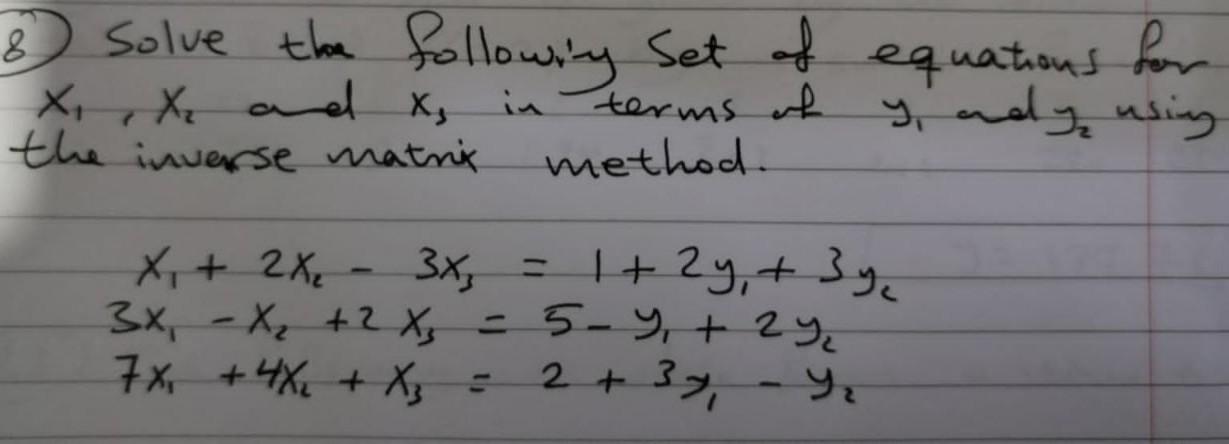 8) Solve the following set of equations for
x₁, x₂ and x₃ in terms of y₁ and y₂ using
the inverse matrix method.
x₁ + 2x₂ - 3x₃ = 1 + 2y₁ + 3y₂
3x₁ - x₂ + 2x₃ = 5 - y₁ + 2y₂
7x₁ + 4x₂ + x₃ = 2 + 3y₁ - y₂